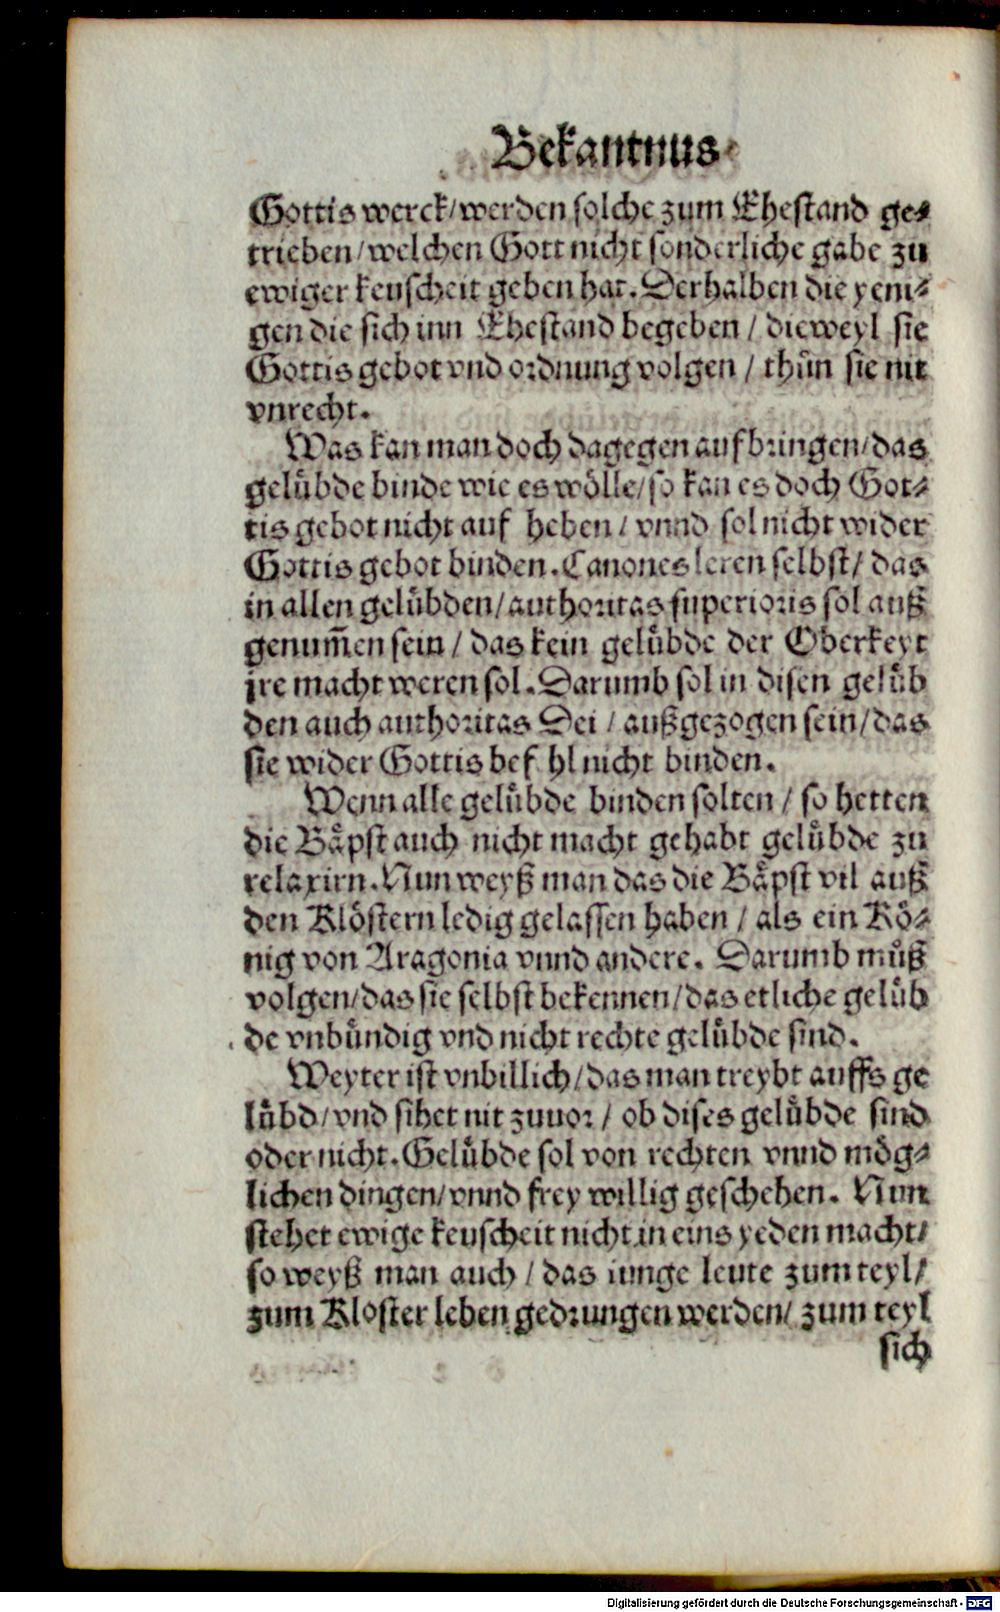 Bekantnus
Gottis werck/werden solche zum Ehestand ge⸗
trieben/welchen Gott nicht sonderliche gabe zu
ewiger keuscheit geben hat. Derhalben die yeni⸗
gen die sich inn Ehestand begeben / dieweyl sie
Gottis gebot vnd ordnung volgen / thůn sie nit
vnrecht.
Was kan man doch dagegen aufbringen/das
gelübde binde wie es wölle/so kan es doch Got⸗
tis gebot nicht auf heben / vnnd sol nicht wider
Gottis gebot binden. Canones leren selbst/ das
in allen gelübden/authoritas superioris sol auß
genum̃en sein / das kein gelübde der Oberkeyt
jre macht weren sol. Darumb sol in disen gelüb
den auch authoritas Dei / außgezogen sein/das
sie wider Gottis bef hl nicht binden.
Wenn alle gelübde binden solten / so hetten
die Bäpst auch nicht macht gehabt gelübde zu
relaxirn. Nun weyß man das die Bäpst vil auß
den Klöstern ledig gelassen haben / als ein Kö⸗
nig von Aragonia vnnd andere. Darumb můß
volgen/das sie selbst bekennen/das etliche gelüb
de vnbündig vnd nicht rechte gelübde sind.
Weyter ist vnbillich/das man treybt auffs ge
lübd/vnd sihet nit zuuor / ob dises gelübde sind
oder nicht. Gelübde sol von rechten vnnd mög⸗
lichen dingen/vnnd frey willig geschehen. Nun
stehet ewige keuscheit nicht in eins yeden macht/
so weyß man auch / das iunge leute zum teyl/
zum Kloster leben gedrungen werden/ zum teyl
sich
Digitalisierung gefördert durch die Deutsche Forschungsgemeinschaft - DFG